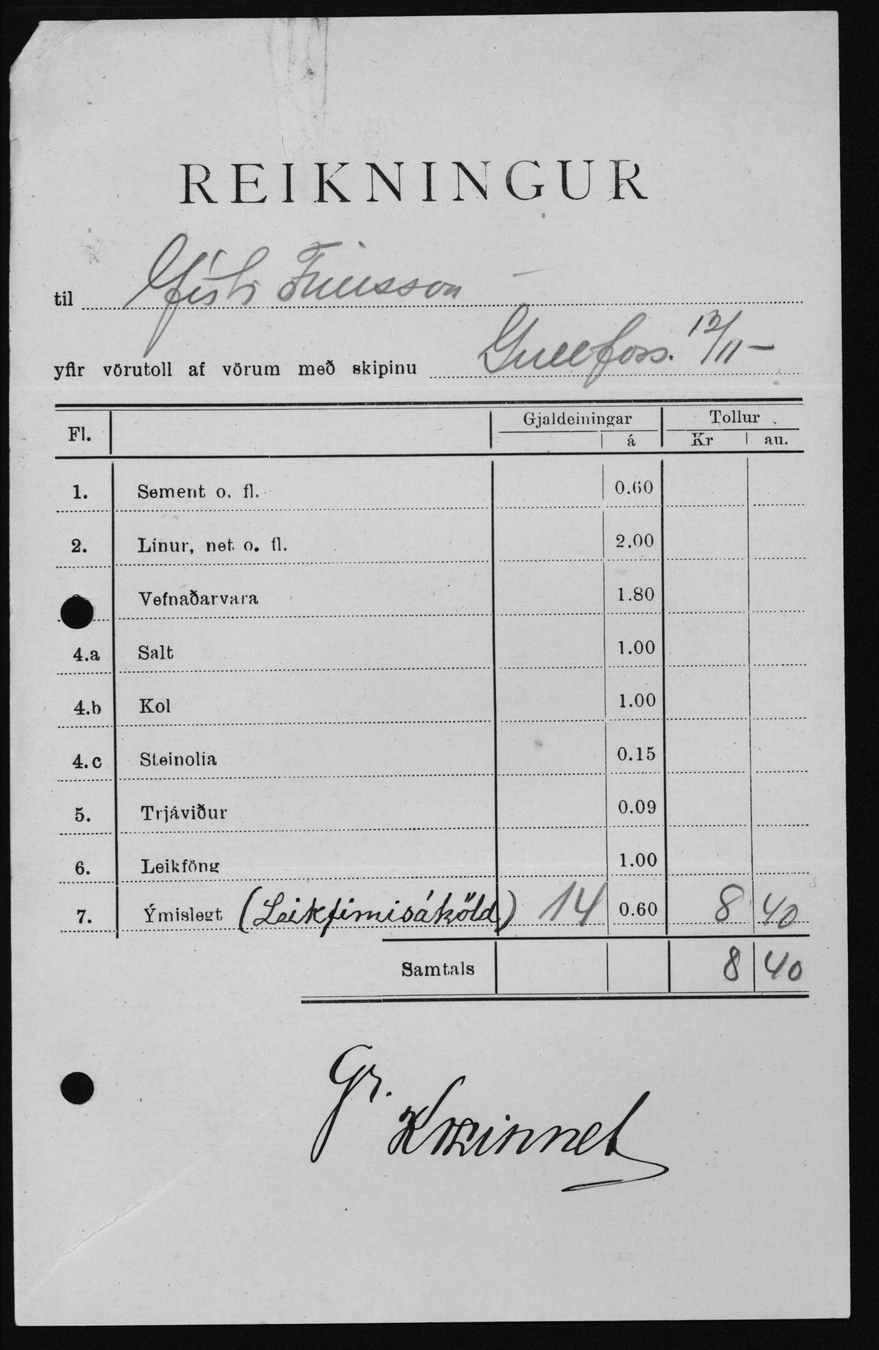 REIKNINGUR
til Gísli Finsson
yfir vörutoll af vörum með skipinu Gullfoss. 12/11 –
Fl. Gjaldeiningar Tollur
á Kr au.
1. Sement o. fl. 0.60
2. Línur, net o. fl. 2.00
Vefnaðarvara 1.80
4.a Salt 1.00
4.b Kol 1.00
4.c Steinolía 0.15
5. Trjáviður 0.09
6. Leikföng 1.00
7. Ýmislegt (Leikfimisáhöld) 14 0.60 8 40
Samtals 8 40
Gr.